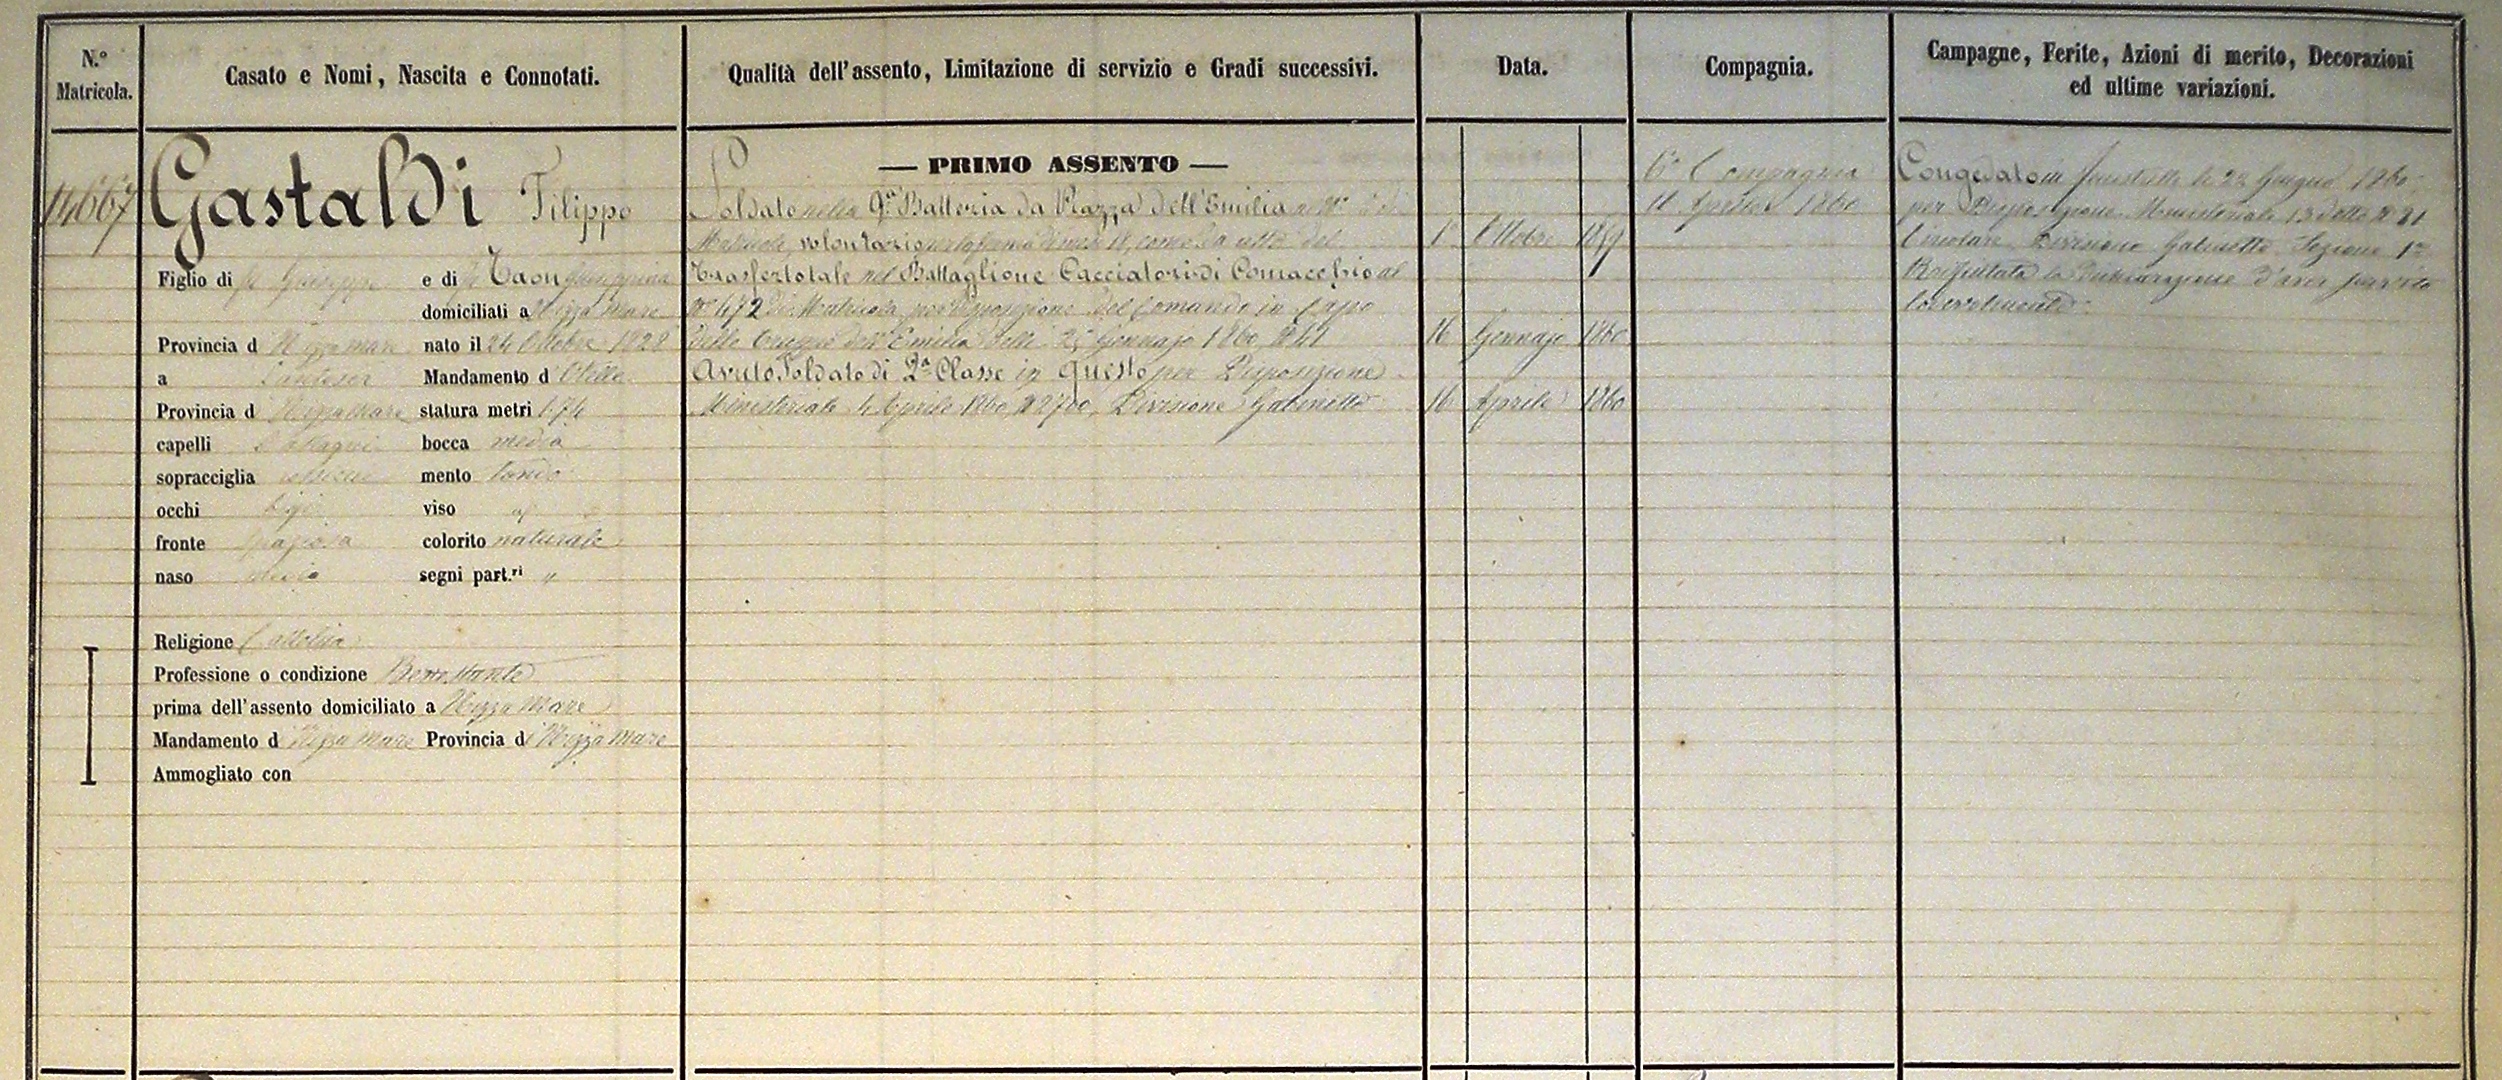 N.° Matricola.
Casato e Nomi, Nascita e Connotati.
Qualità dell'assento, Limitazione di servizio e Gradi successivi.
Data.
Compagnia.
Campagne, Ferite, Azioni di merito, Decorazioni
ed ultime variazioni.
14667
Gastaldi Filippo
Figlio di fu Giuseppe e di fu Taon Giuseppina
domiciliati a Nizza mare
Provincia d Nizza mare nato il 24 Ottobre 1828
a Mandamento d' Utelle
Provincia d Nizza mare statura metri 1.74
capelli castagni bocca media
sopracciglia mento tondo
occhi bigi viso
fronte spaziosa colorito naturale
naso medio segni part.ri "
Religione Cattolica
Professione o condizione Benestante
prima dell'assento domiciliato a Nizza Mare
Mandamento d Nizza Mare Provincia di Nizza Mare
Ammogliato con
— PRIMO ASSENTO —
Soldato nella 9.a Batteria da Piazza dell'Emilia al N.°
Matricola, volontario per la ferma di mesi 18, come da atto del
1° Ottobre 1859
Trasferto tale nel Battaglione Cacciatori di Comacchio al
N° 472 di Matricola per disposizione del Comando in Capo
delle Truppe dell'Emilia delli 25 Gennajo 1860, N° 41
16 Gennajo 1860
Avuto Soldato di 2.a Classe in questo per Disposizione
Ministeriale 4 Aprile 1860 N° 2700, Divisione Gabinetto
16 Aprile 1860
6.a Compagnia
18 Aprile 1860
Congedato in Fenestrelle li 22 Giugno 1860
per Disposizione Ministeriale 13 detto N° 21
Circolare Divisione Gabinetto Sezione 1.a
Rifiutata la Dichiarazione d'aver servito
lodevolmente.